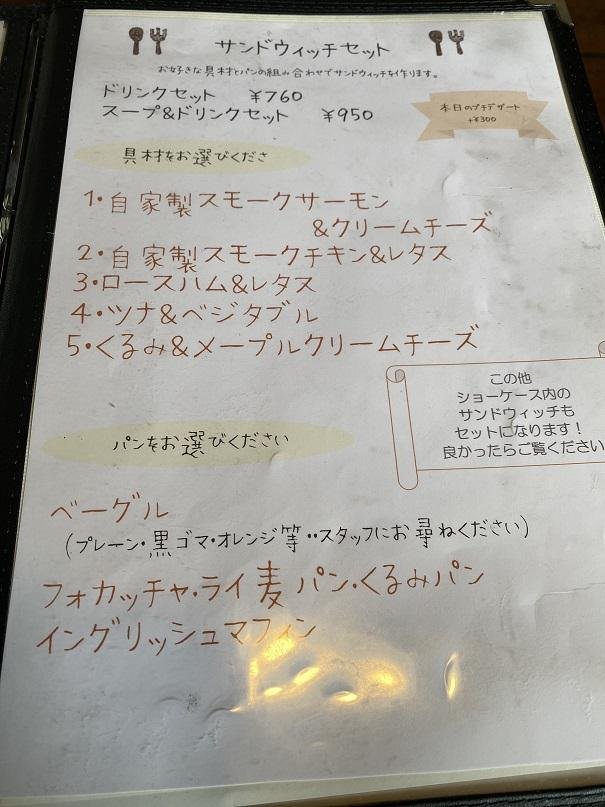 サンドウィッチセット
お好きな具材とパンの組み合わせでサンドウィッチを作ります。
ドリンクセット ¥760
スープ&ドリンクセット ¥950
本日のプチデザート
+¥300
具材をお選びくださ
1・自家製スモークサーモン
&クリームチーズ
2・自家製スモークチキン&レタス
3・ロースハム&レタス
4・ツナ&ベジタブル
5・くるみ&メープルクリームチーズ
この他
ショーケース内の
サンドウィッチも
セットになります!
良かったらご覧ください
パンをお選びください
ベーグル
(プレーン・黒ゴマ・オレンジ等・・スタッフにお尋ねください)
フォカッチャ・ライ麦パン・くるみパン
イングリッシュマフィン